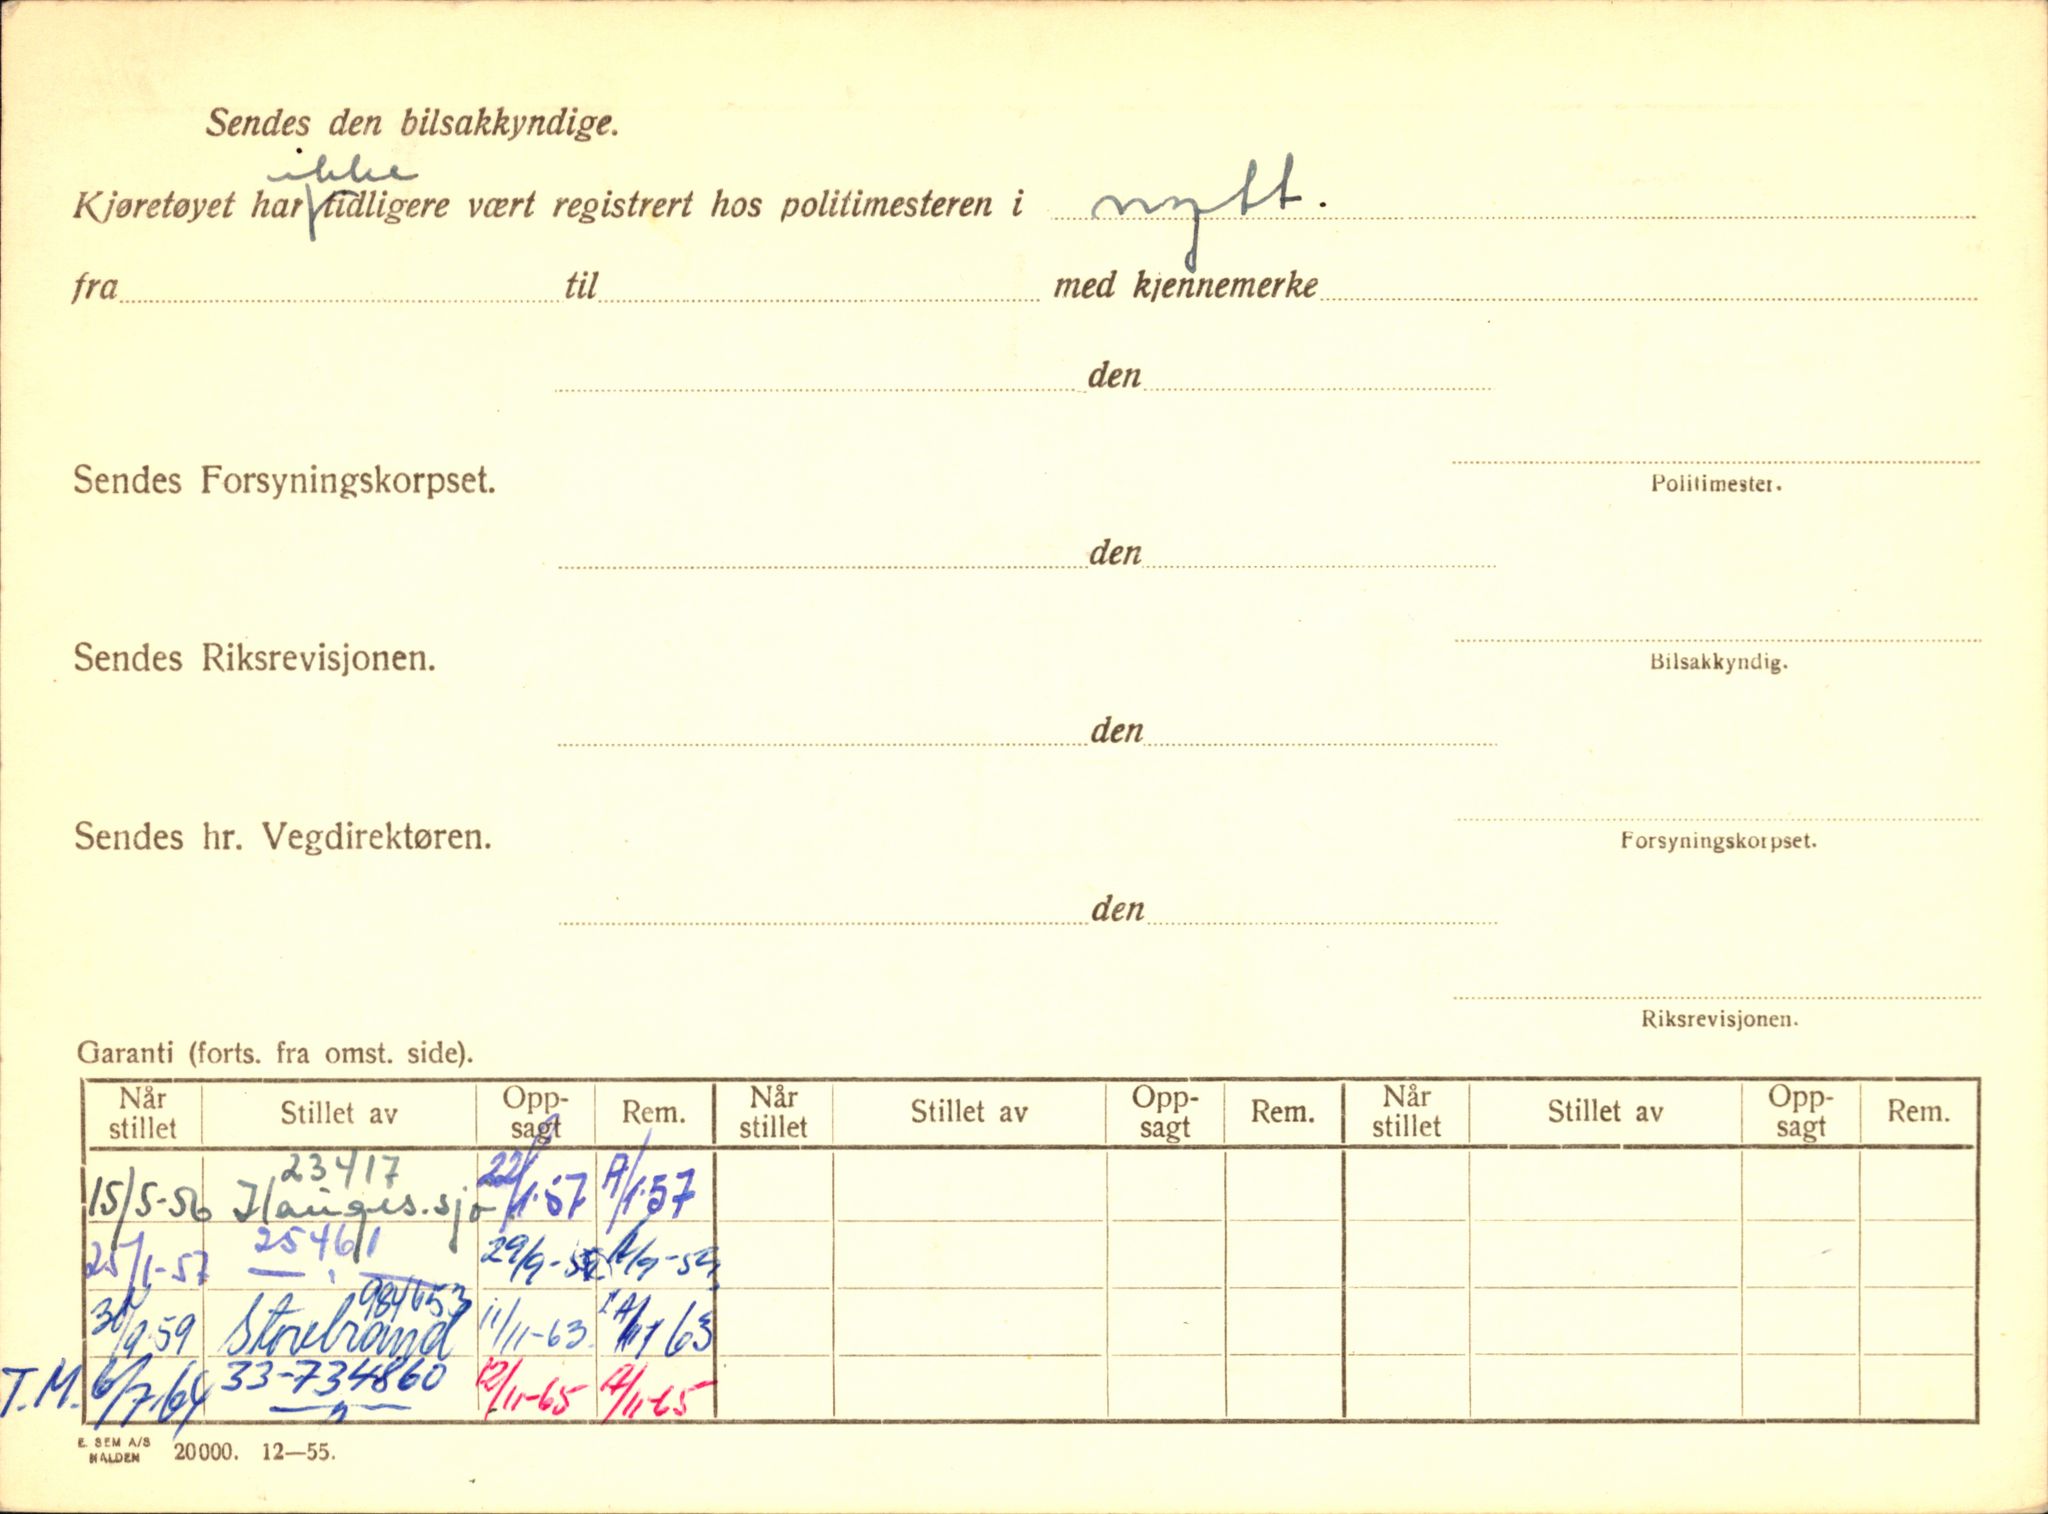 Sendes den bilsakkyndige.
ikke
Kjøretøyet har tidligere vært registrert hos politimesteren i nytt.
fra til med kjennemerke
den
Sendes Forsyningskorpset. Politimester.
den
Sendes Riksrevisjonen. Bilsakkyndig.
den
Sendes hr. Vegdirektøren. Forsyningskorpset.
den
Riksrevisjonen.
Garanti (forts. fra omst. side).
Når stillet Stillet av Opp-sagt Rem. Når stillet Stillet av Opp-sagt Rem. Når stillet Stillet av Opp-sagt Rem.
23417
15/5-56 22/1-57 /1-57
25461
25/1-57 — " — 29/9-59 /9-59
984653
/9-59 Storebrand 11/11-63 /11-63
T.M. 6/7-64 33-734860 12/11-65 /11-65
— " —
E. SEM A/S
HALDEN 20000. 12—55.